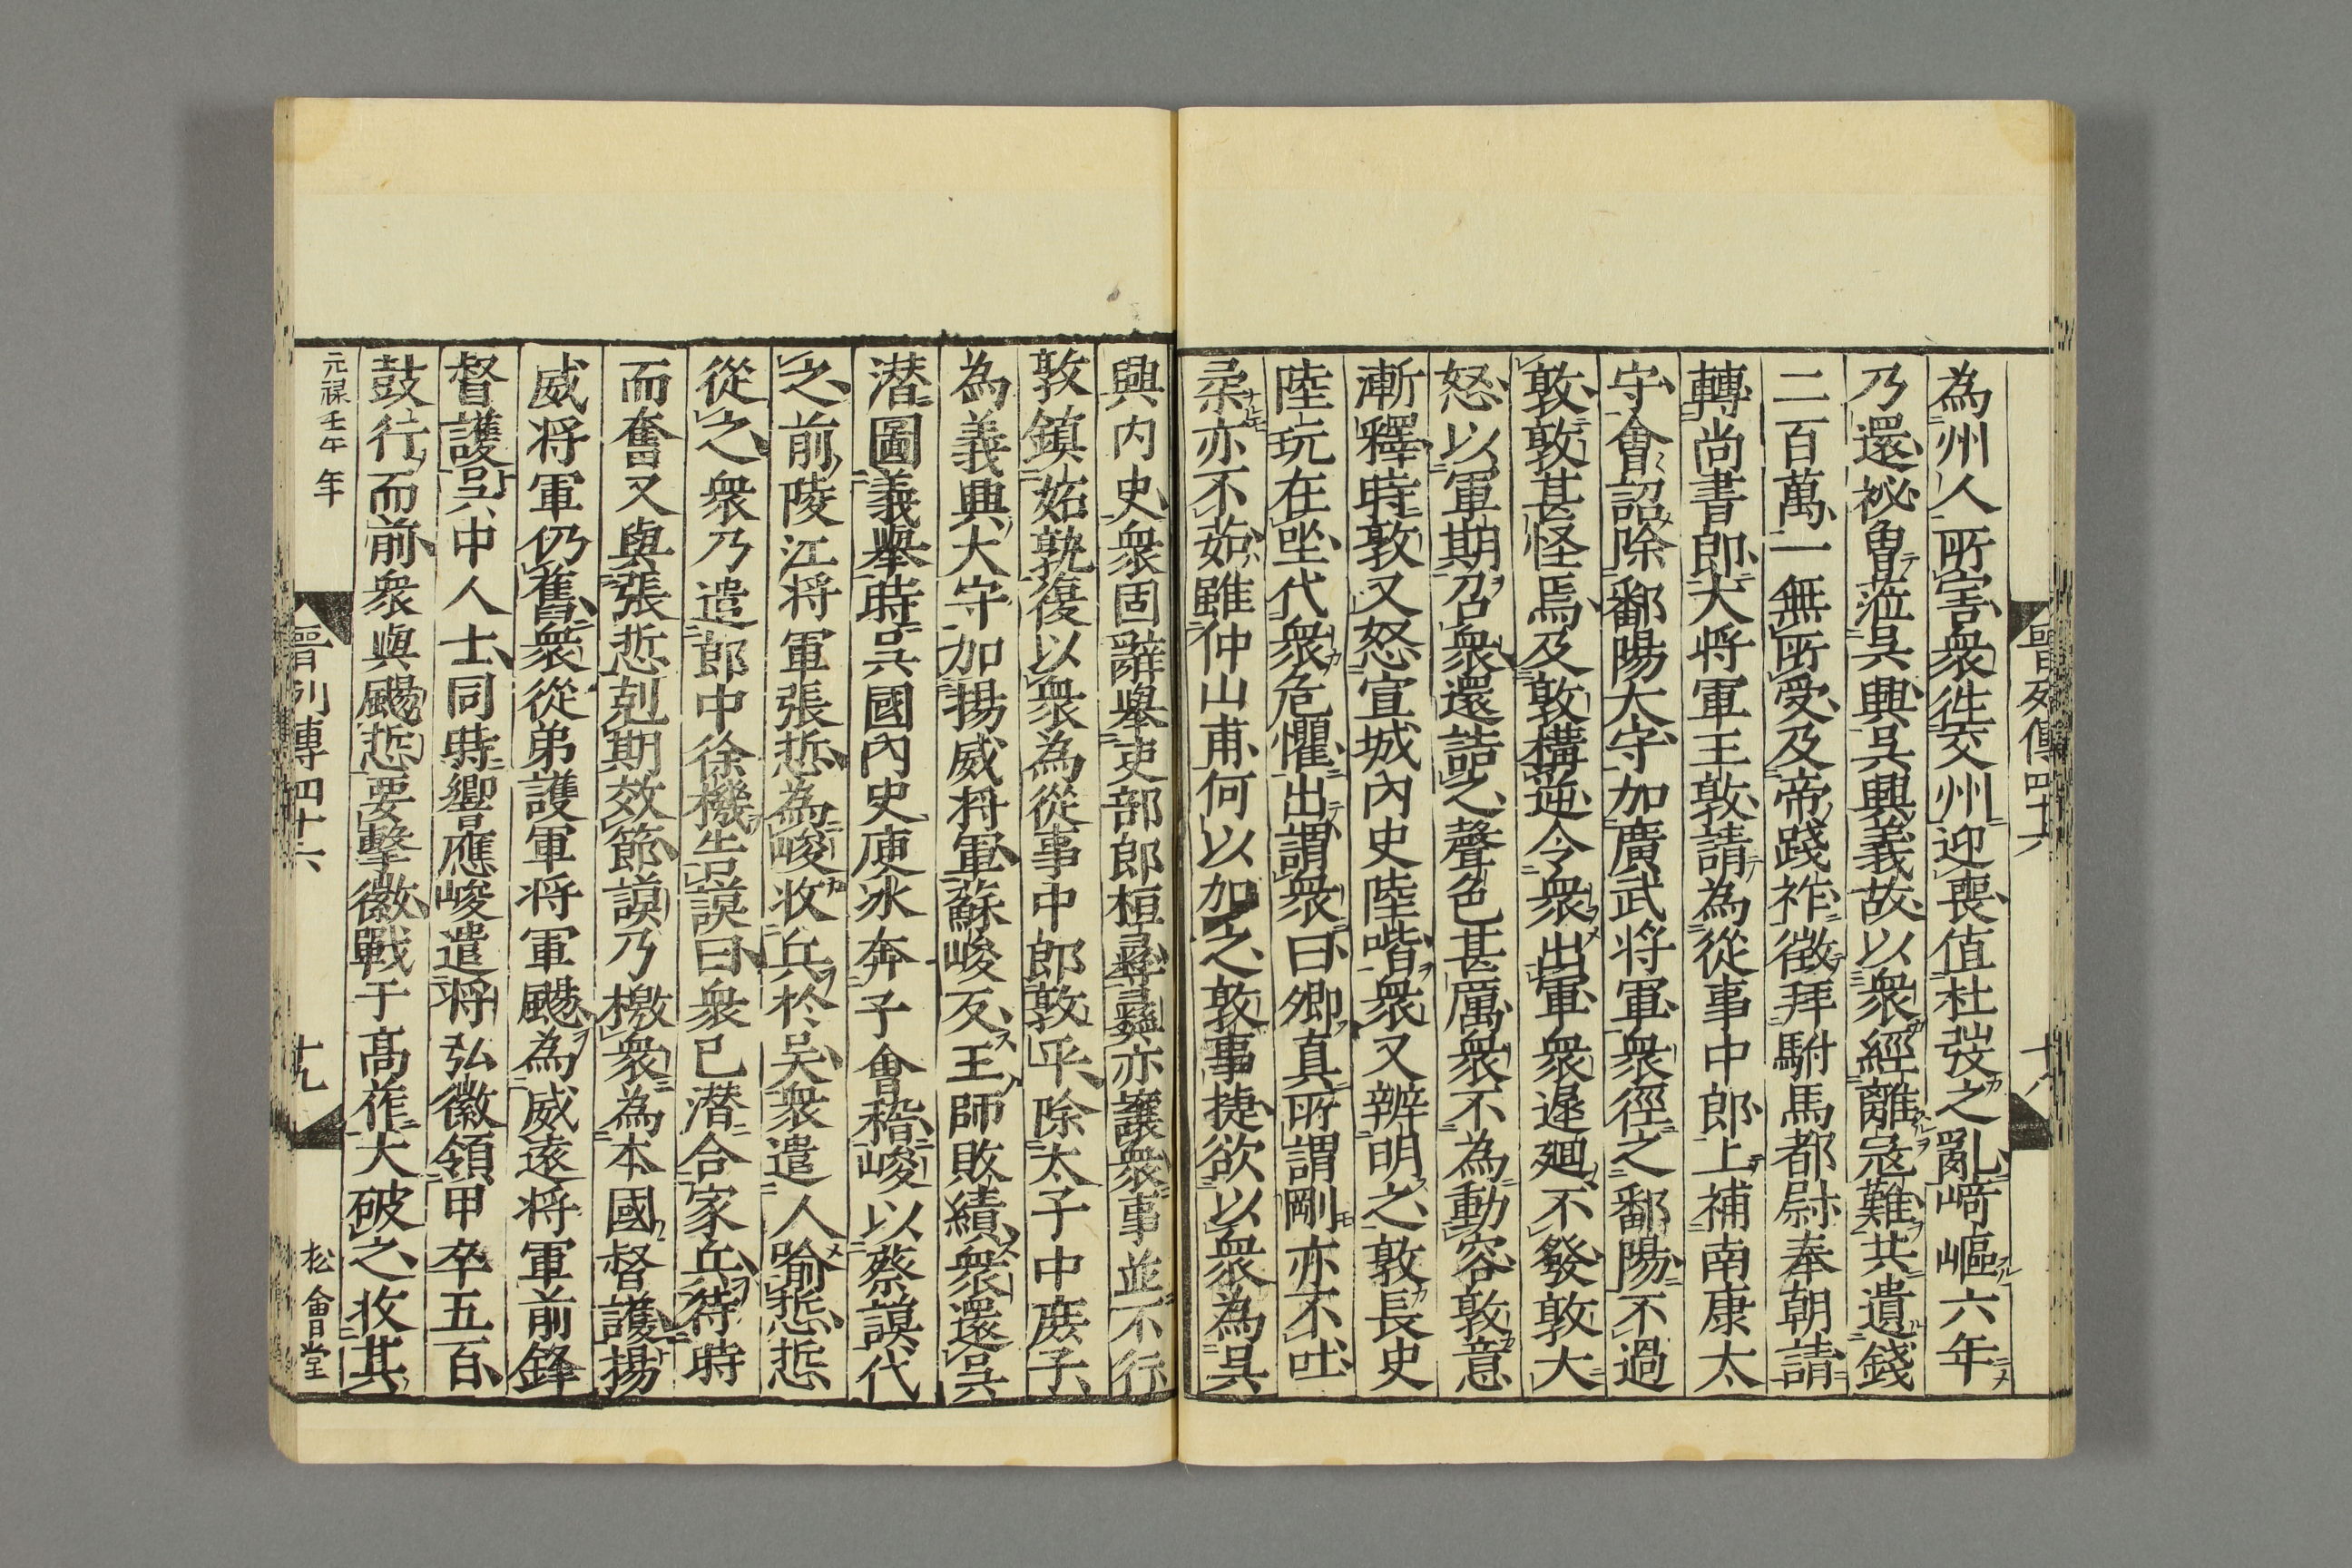 晉列傳四十六
十八
為州人所害衆往交州迎喪值杜弢之亂崎嶇六年
乃還祕曾蒞吳興吳興義故以衆經離冦難共遺錢
二百萬一無所受及帝踐祚徵拜駙馬都尉奉朝請
轉尚書郎大将軍王敦請為從事中郎上補南康太
守會詔除鄱陽大守加廣武将軍衆徑之鄱陽不過
敦敦甚怪焉及敦構逆令衆出軍衆遲廻不發敦大
怒以軍期召衆還詰之聲色甚厲衆不為動容敦意
漸釋時敦又怒宣城內史陸喈衆又辨明之敦長史
陸玩在坐代衆危懼出謂衆曰卿真所謂剛亦不吐
柔亦不茹雖仲山甫何以加之敦事捷欲以衆為吳
興内史衆固辭舉吏部郎桓彝彝亦讓衆事並不行
敦鎮姑孰復以衆為從事中郎敦平除太子中庶子
為義興大守加揚威将軍蘇峻反王師敗績衆還吳
潜圖義舉時吳國內史庾冰奔子會稽峻以蔡謨代
之前陵江将軍張悊為峻收兵於吳衆遣人喻悊悊
從之衆乃遣郎中徐機告謨曰衆已潜合家兵待時
而奮又與張悊剋期效節謨乃檄衆為本國督護揚
威将軍仍舊衆從弟護軍将軍颺為威遠将軍前鋒
督護吳中人士同時響應峻遣将弘徽領甲卒五百
鼓行而前衆與颺悊要擊徽戰于高莋大破之收其
元禄壬午年
晉列傳四十六
十九
松會堂